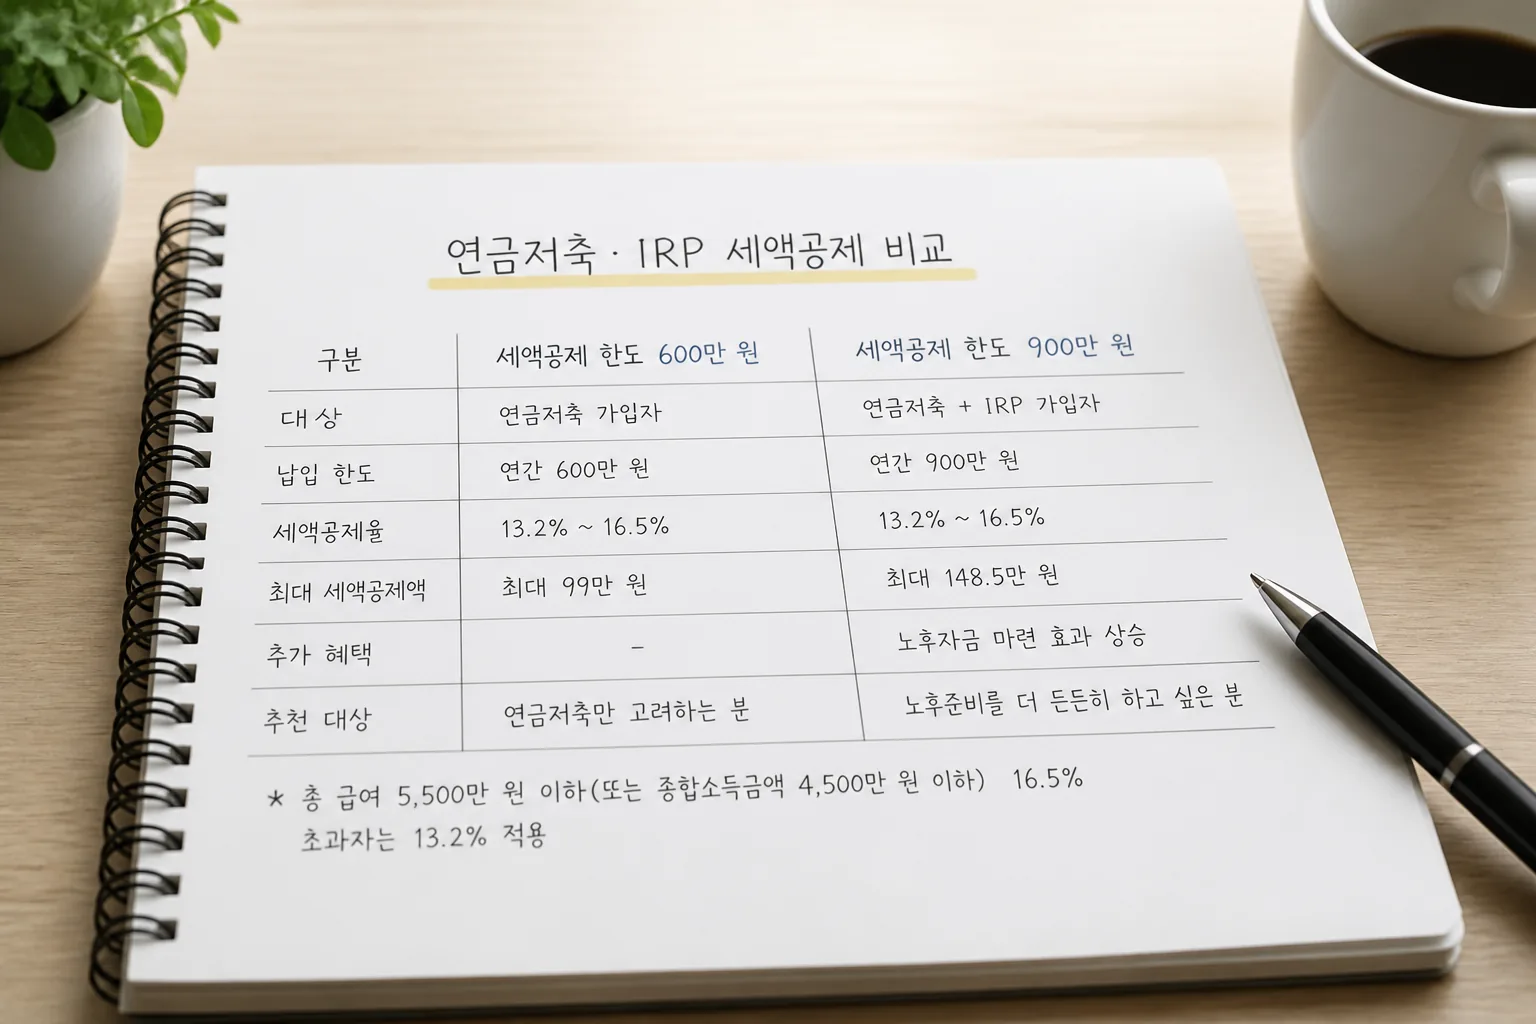 연금저축 · IRP 세액공제 비교
구분 세액공제 한도 600만 원 세액공제 한도 900만 원
대상 연금저축 가입자 연금저축 + IRP 가입자
납입 한도 연간 600만 원 연간 900만 원
세액공제율 13.2% ~ 16.5% 13.2% ~ 16.5%
최대 세액공제액 최대 99만 원 최대 148.5만 원
추가 혜택 - 노후자금 마련 효과 상승
추천 대상 연금저축만 고려하는 분 노후준비를 더 든든히 하고 싶은 분
* 총 급여 5,500만 원 이하(또는 종합소득금액 4,500만 원 이하) 16.5%
초과자는 13.2% 적용